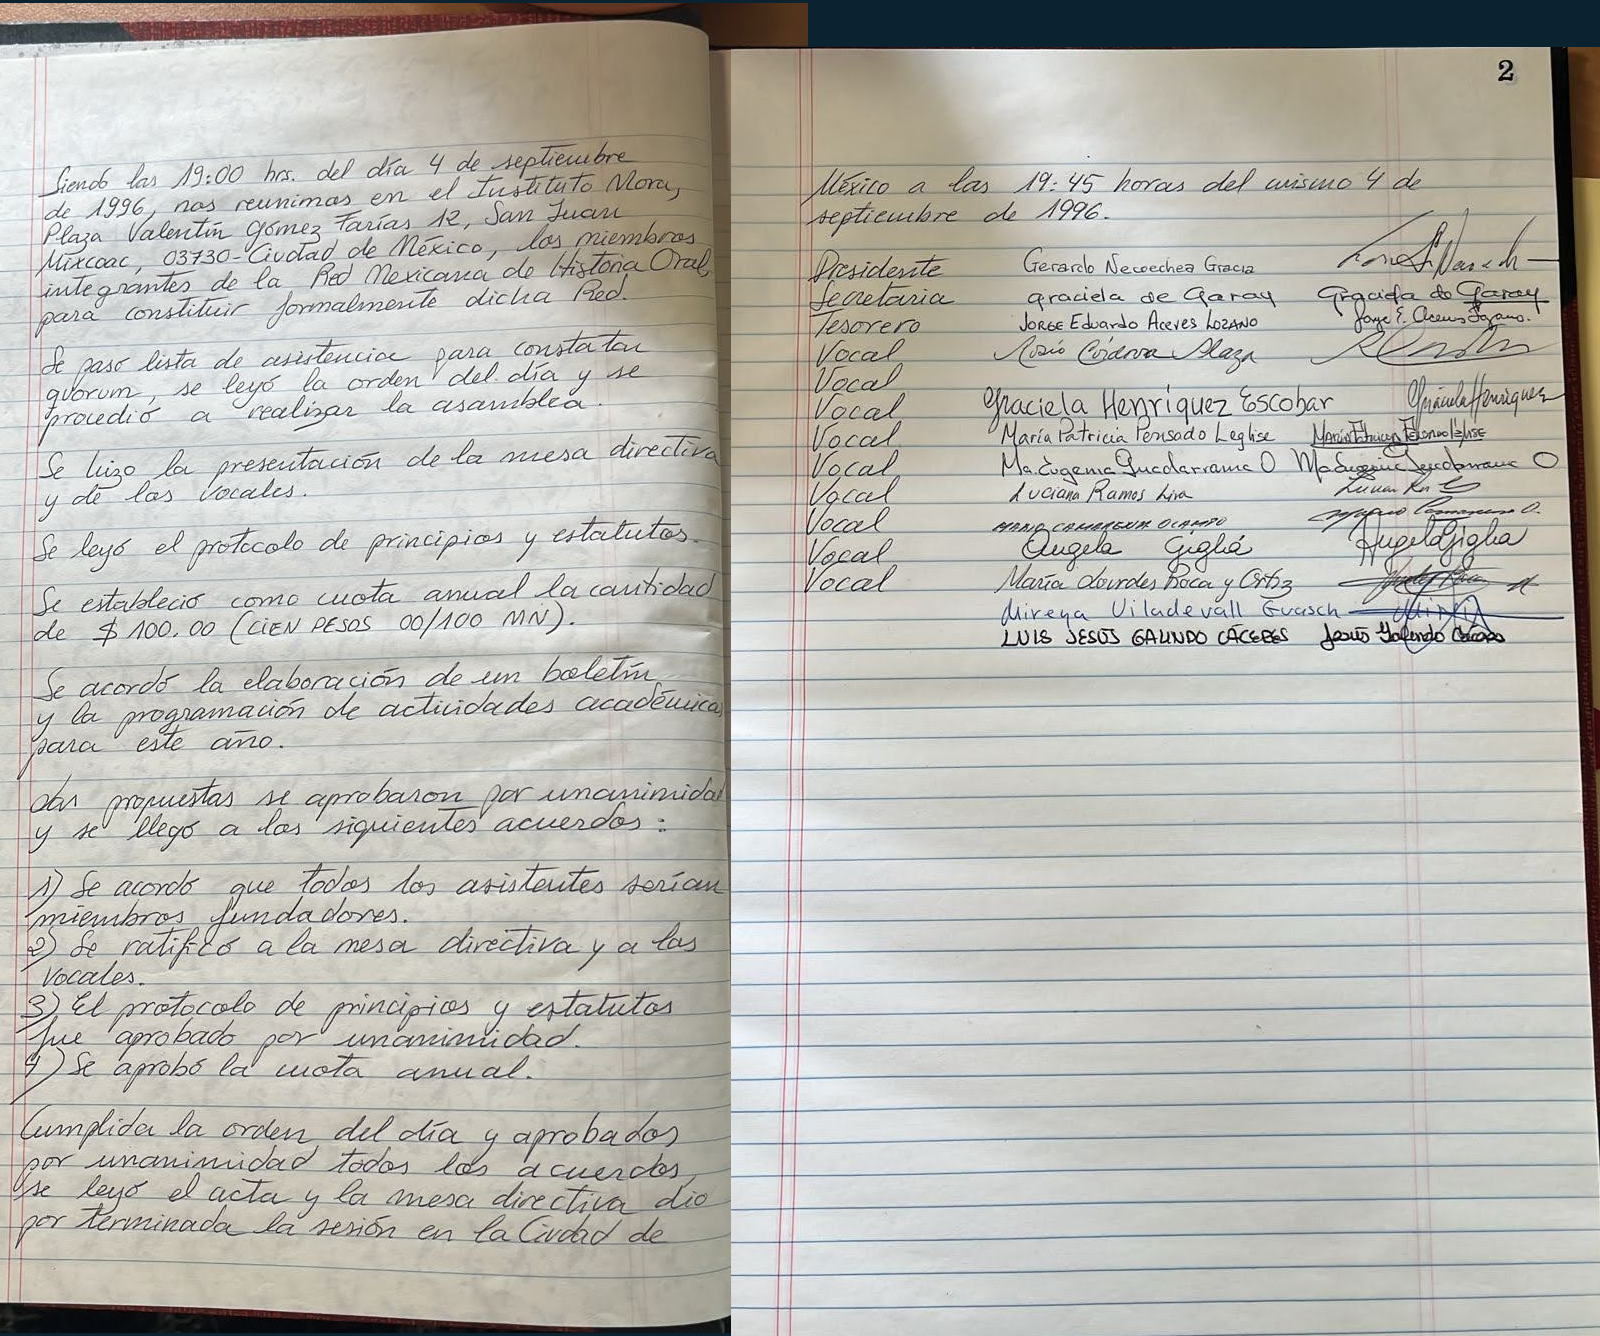 Siendo las 19:00 hrs. del día 4 de septiembre
de 1996, nos reunimos en el Instituto Mora,
Plaza Valentín Gómez Farías 12, San Juan
Mixcoac, 03730-Ciudad de México, los miembros
integrantes de la Red Mexicana de Historia Oral,
para constituir formalmente dicha Red.
Se pasó lista de asistencia para constatar
quorum, se leyó la orden del día y se
procedió a realizar la asamblea.
Se hizo la presentación de la mesa directiva
y de los vocales.
Se leyó el protocolo de principios y estatutos.
Se estableció como cuota anual la cantidad
de $ 100.00 (CIEN PESOS 00/100 MN).
Se acordó la elaboración de un boletín
y la programación de actividades académicas
para este año.
Las propuestas se aprobaron por unanimidad
y se llegó a los siguientes acuerdos:
1) Se acordó que todos los asistentes serían
miembros fundadores.
2) Se ratificó a la mesa directiva y a los
vocales.
3) El protocolo de principios y estatutos
fue aprobado por unanimidad.
4) Se aprobó la cuota anual.
Cumplida la orden del día y aprobados
por unanimidad todos los acuerdos,
se leyó el acta y la mesa directiva dio
por terminada la sesión en la Ciudad de
2
México a las 19:45 horas del mismo 4 de
septiembre de 1996.
Presidente Gerardo Necoechea Gracia
Secretaria Graciela de Garay Graciela de Garay
Tesorero JORGE Eduardo Aceves LOZANO Jorge E. Aceves Lozano.
Vocal Rosío Córdova Plaza
Vocal
Vocal Graciela Henríquez Escobar Graciela Henríquez
Vocal María Patricia Pensado Leglise María Patricia Pensado Leglise
Vocal Ma. Eugenia Guadarrama O Ma Eugenia Guadarrama O
Vocal Luciano Ramos Lira
Vocal MARIO CAMARENA OCAMPO Mario Camarena O.
Vocal Angela Giglia Angela Giglia
Vocal María Lourdes Roca y Ortiz
Mireya Viladevall Guasch
LUIS JESÚS GALINDO CÁCERES Jesús Galindo Cáceres